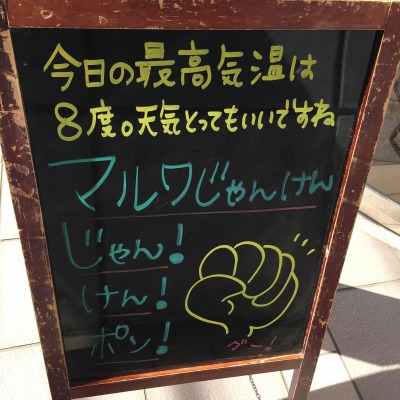 今日の最高気温は
8度。天気とってもいいですね
マルワじゃんけん
じゃん!
けん!
ポン!
グー!